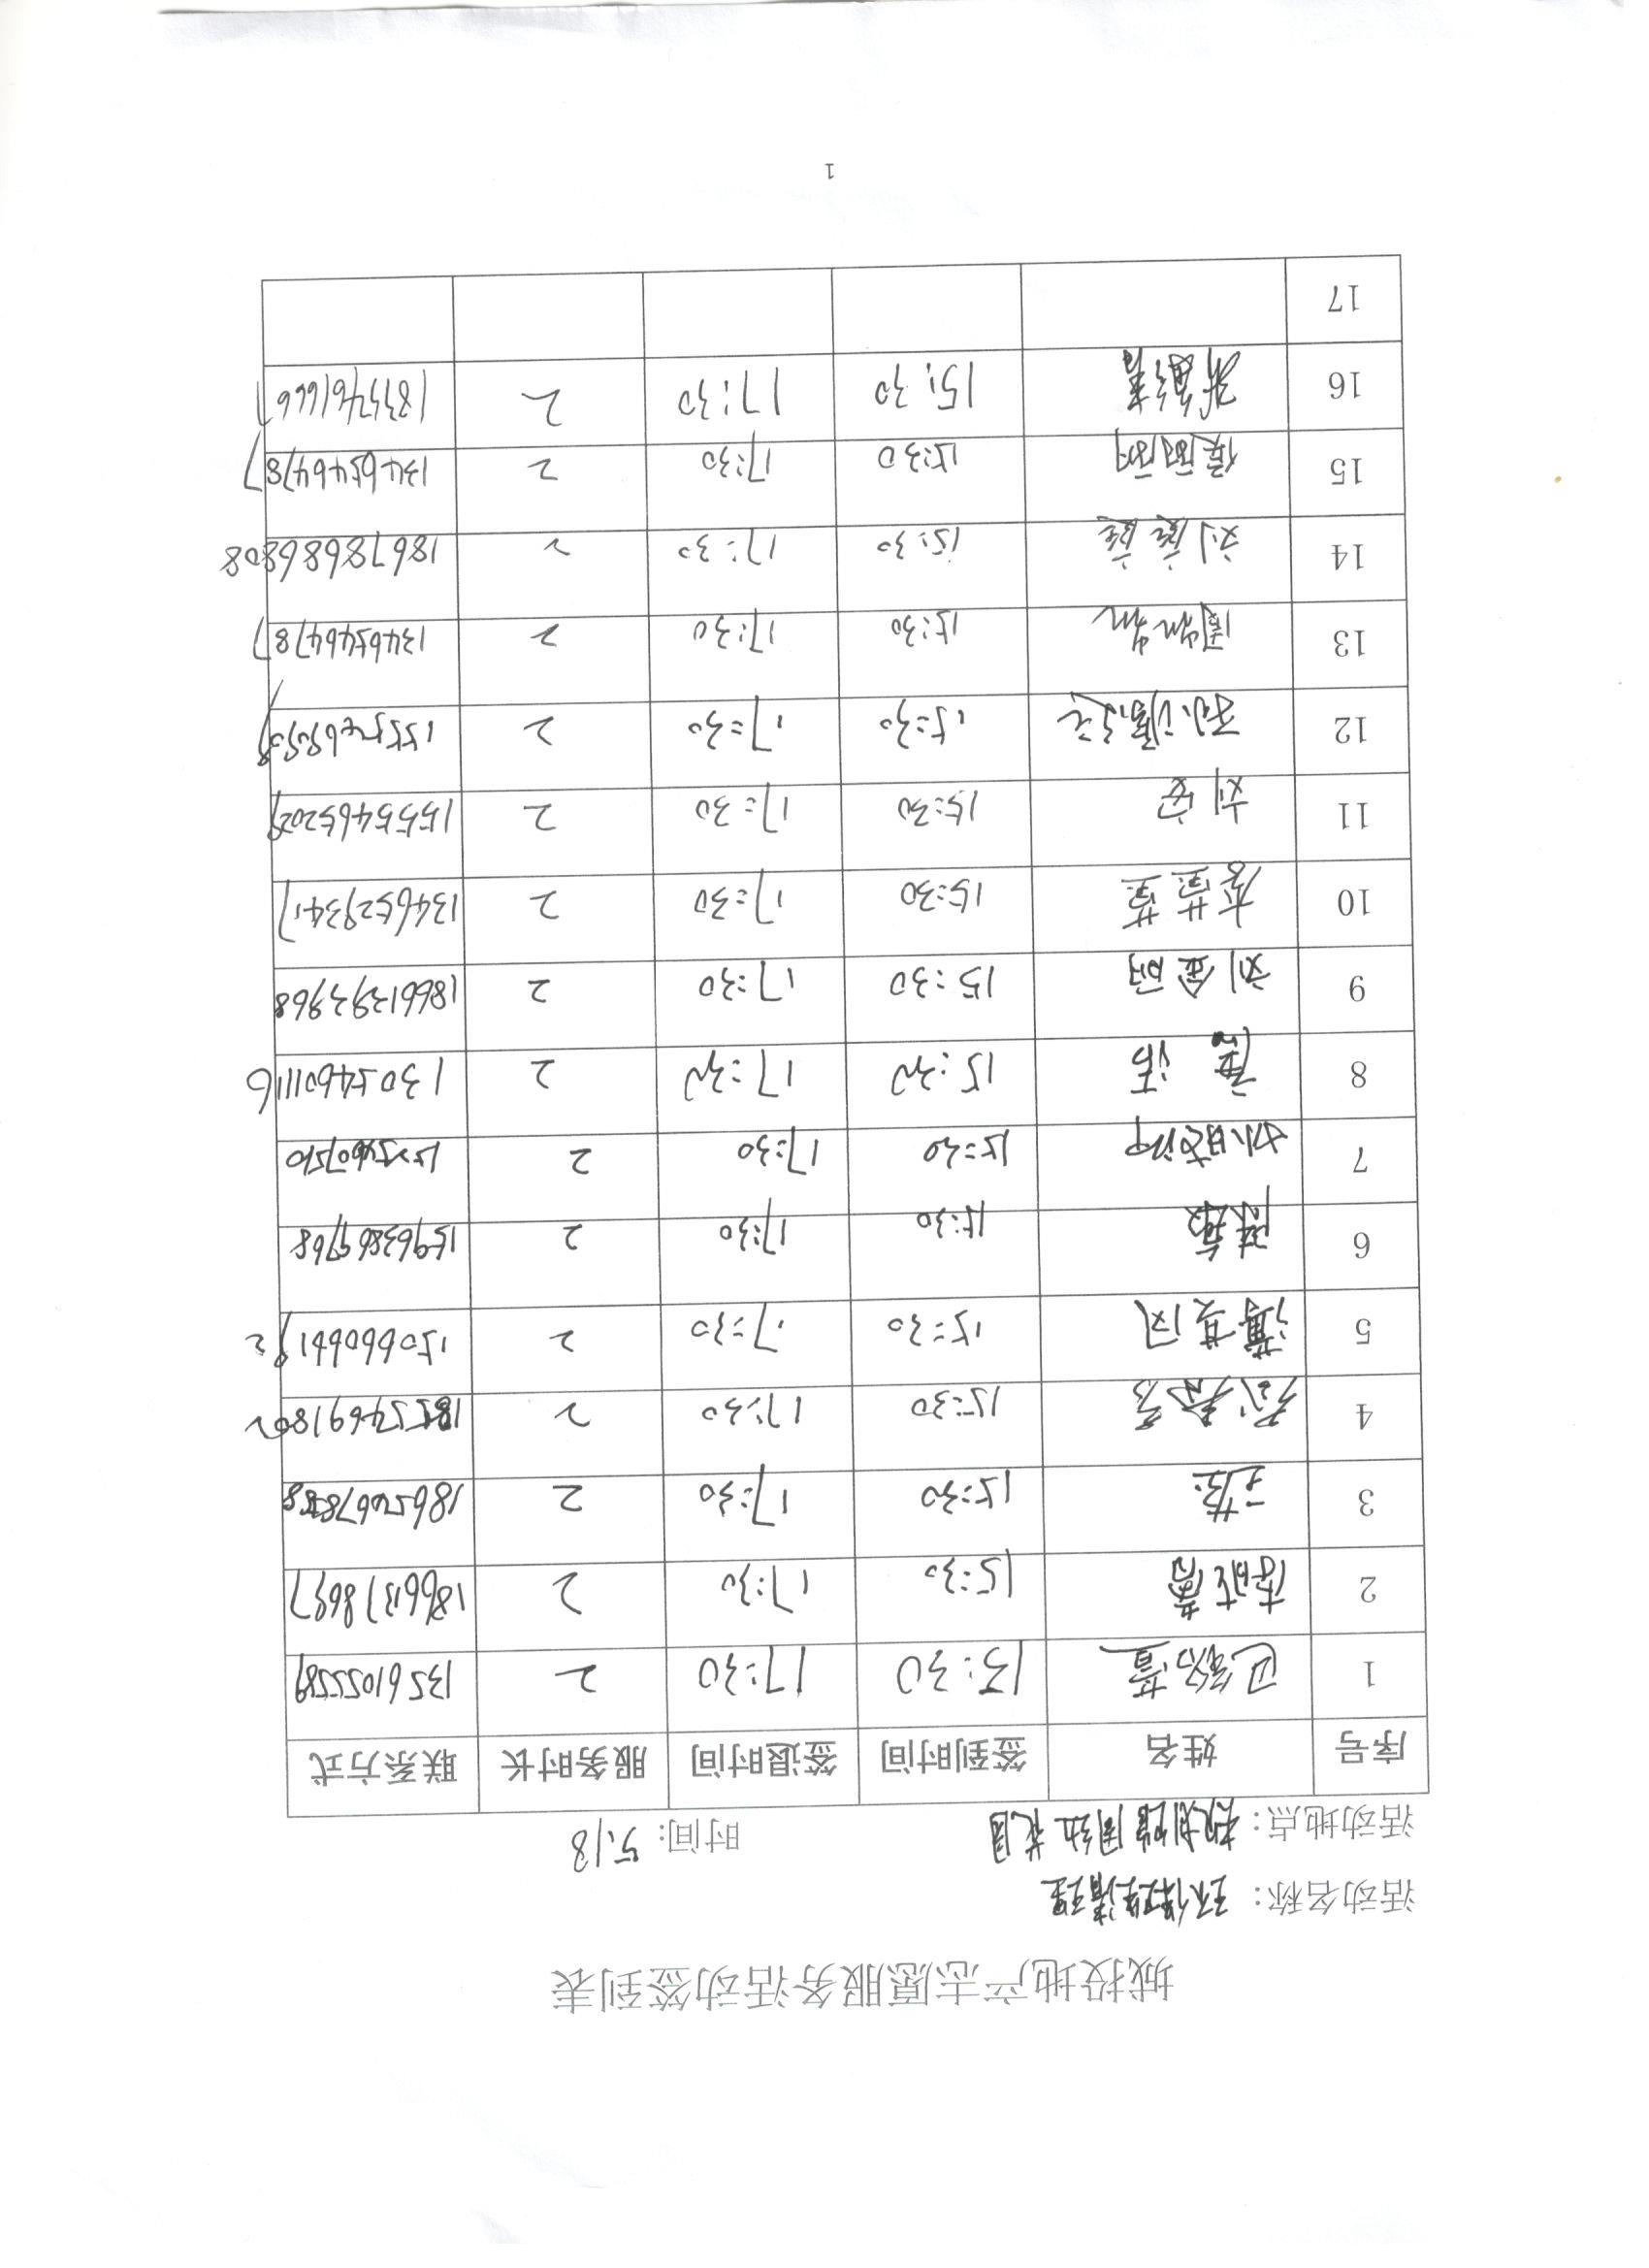 城投地产志愿服务活动签到表
活动名称：环保卫生清理
活动地点：规划馆周边花园 时间：5.18
序号 姓名 签到时间 签退时间 服务时长 联系方式
1 15:30 17:30 2 13561055589
2 15:30 17:30 2 18661378697
3 15:30 17:30 2
4 15:30 17:30 2
5 15:30 17:30 2
6 陈敏 15:30 17:30 2 15963869768
7 15:30 17:30 2
8 15:30 17:30 2 13054601116
9 刘金明 15:30 17:30 2 18661393968
10 15:30 17:30 2 13465293417
11 刘安 15:30 17:30 2 15554652029
12 15:30 17:30 2
13 周姗姗 15:30 17:30 2 13465464787
14 15:30 17:30 2 18678686808
15 侯丽丽 15:30 17:30 2 13465464787
16 15:30 17:30 2
17
1